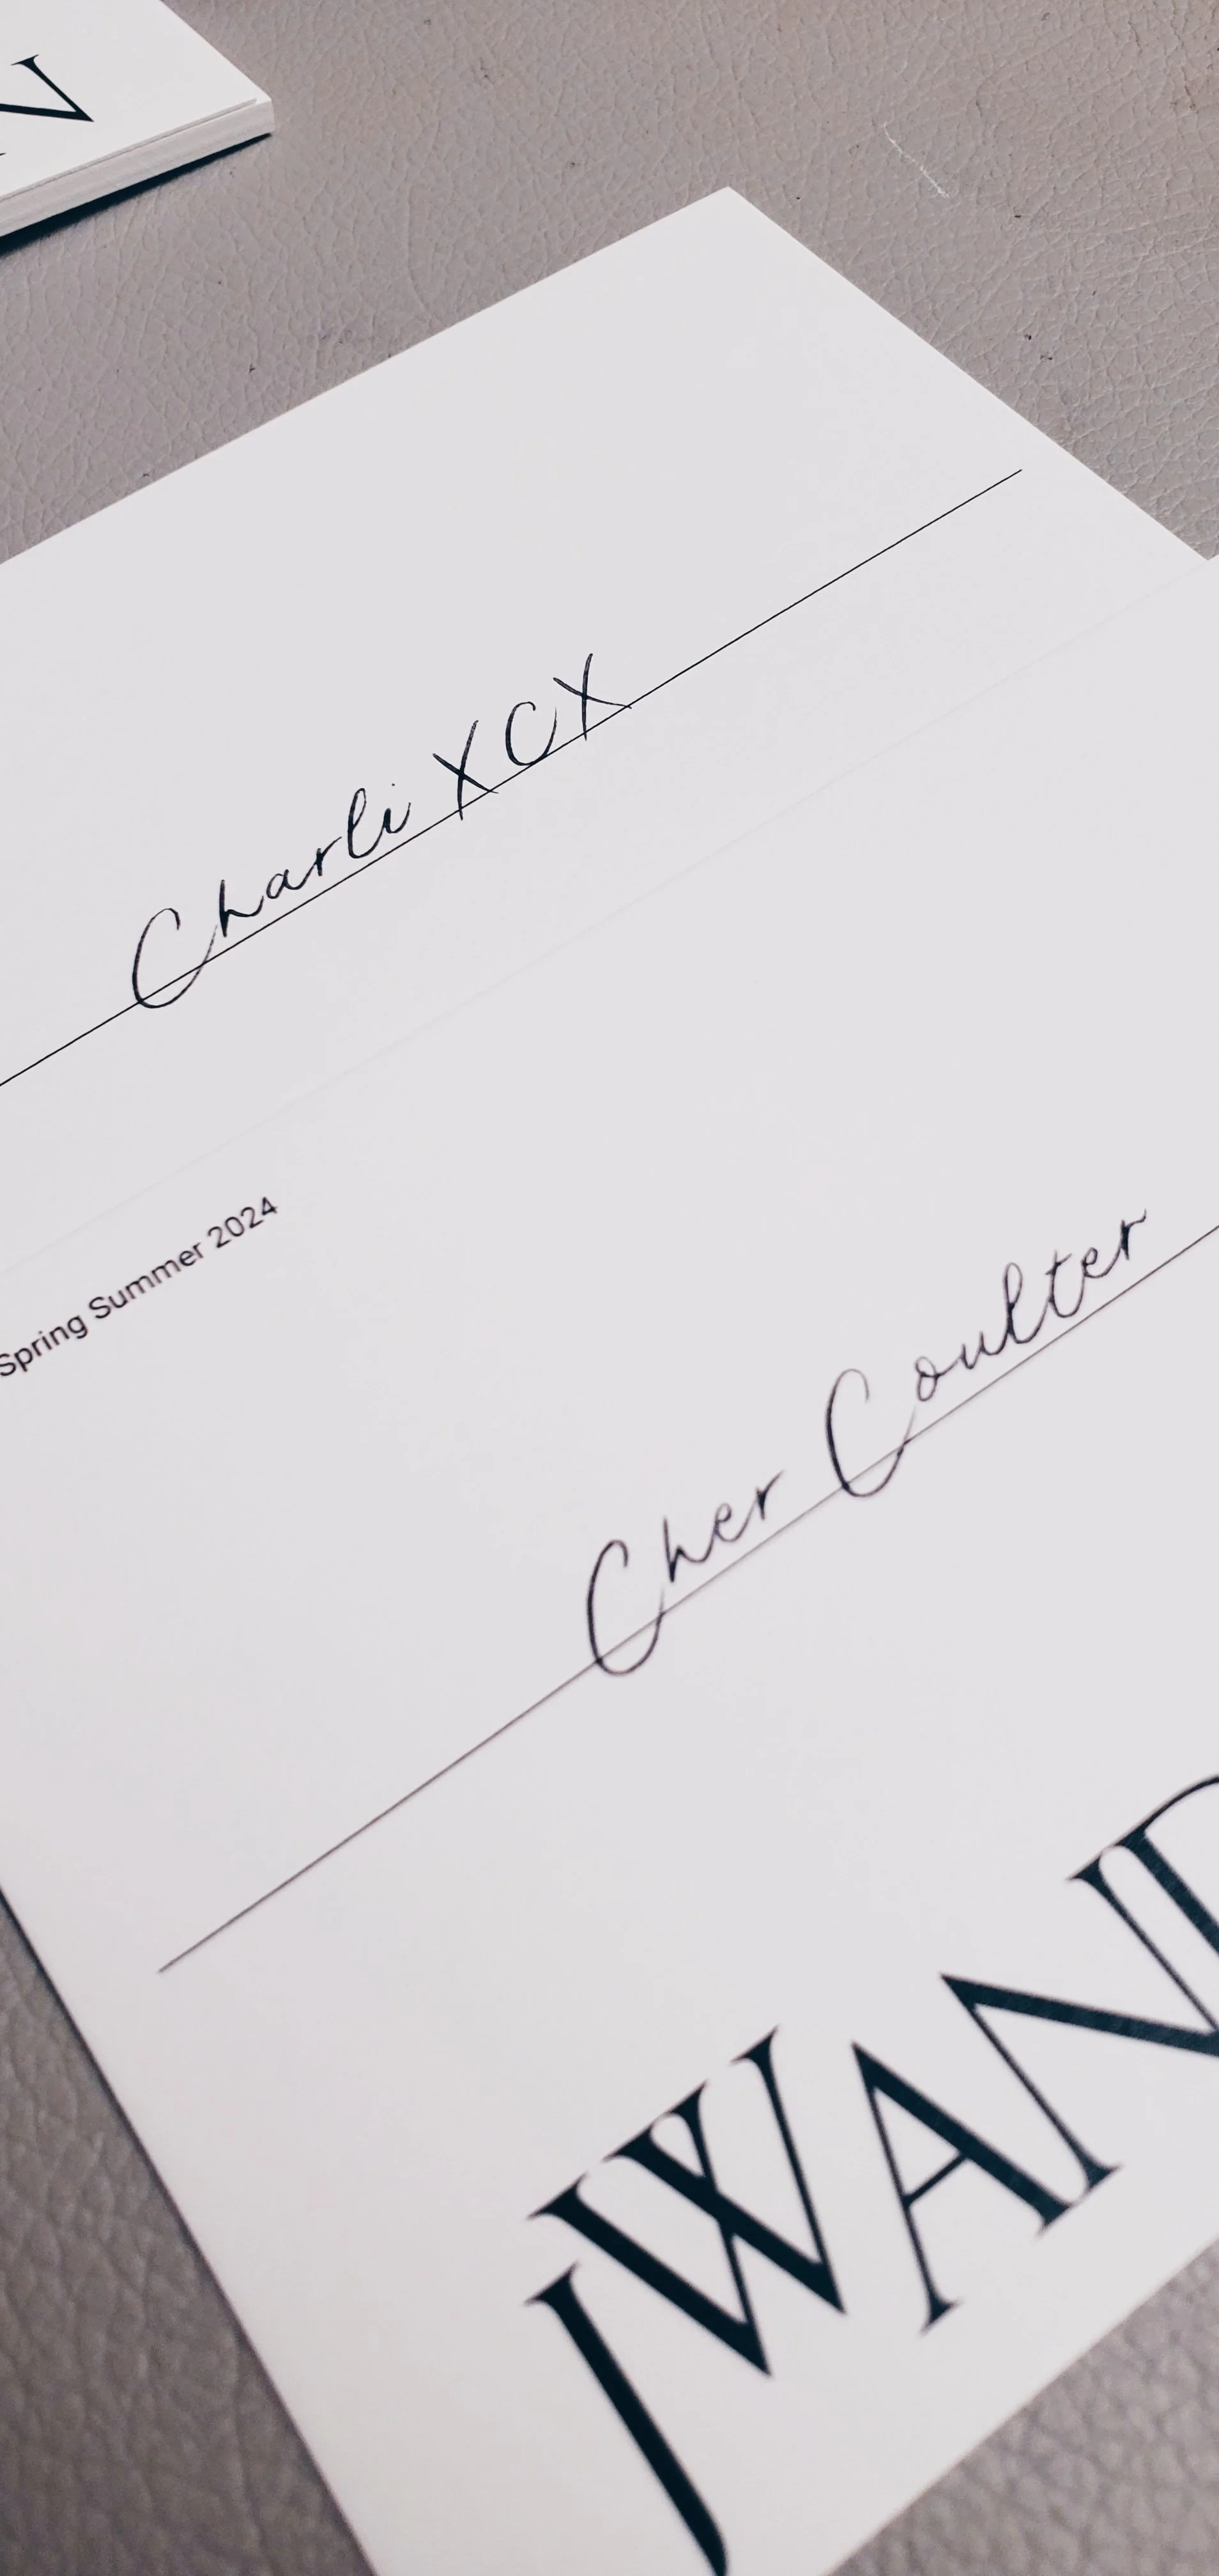 N
Charli XCX
Spring Summer 2024
Cher Coulter
JWAND